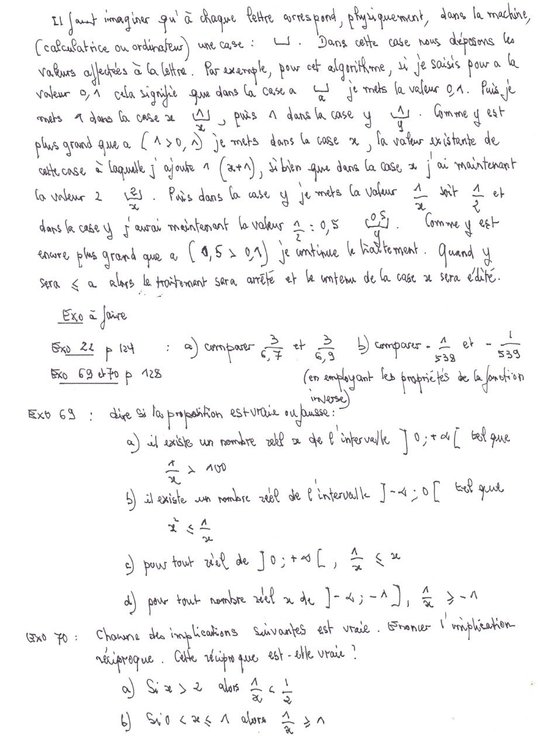 Il faut imaginer qu'à chaque lettre correspond, physiquement, dans la machine,
(calculatrice ou ordinateur) une case : ⊔. Dans cette case nous déposons les
valeurs affectées à la lettre. Par exemple, pour cet algorithme, si je saisis pour a la
valeur 0,1 cela signifie que dans la case a ⊔ a je mets la valeur 0,1. Puis je
mets 1 dans la case x 1 x, puis 1 dans la case y 1 y. Comme y est
plus grand que a (1 > 0,1) je mets dans la case x, la valeur existante de
cette case à laquelle j'ajoute 1 (x+1), si bien que dans la case x j'ai maintenant
la valeur 2 2 x. Puis dans la case y je mets la valeur 1/x soit 1/2 et
dans la case y j'aurai maintenant la valeur 1/2 : 0,5 0,5 y. Comme y est
encore plus grand que a (0,5 > 0,1) je continue le traitement. Quand y
sera ≤ a alors le traitement sera arrêté et le contenu de la case x sera édité.
Exo à faire
Exo 22 p 124 : a) comparer 3/6,7 et 3/6,9 b) comparer - 1/538 et - 1/539
Exo 69 et 70 p 128 (en employant les propriétés de la fonction
inverse)
Exo 69 : dire si la proposition est vraie ou fausse :
a) il existe un nombre réel x de l'intervalle ]0 ; +∞[ tel que
1/x > 100
b) il existe un nombre réel de l'intervalle ]-∞ ; 0[ tel que
x² ≤ 1/x
c) pour tout réel de ]0 ; +∞[, 1/x ≤ x
d) pour tout nombre réel x de ]-∞ ; -1], 1/x ≥ -1
Exo 70 : Chacune des implications suivantes est vraie. Enoncer l'implication
réciproque. Cette réciproque est-elle vraie ?
a) Si x > 2 alors 1/x < 1/2
b) Si 0 < x ≤ 1 alors 1/x ≥ 1